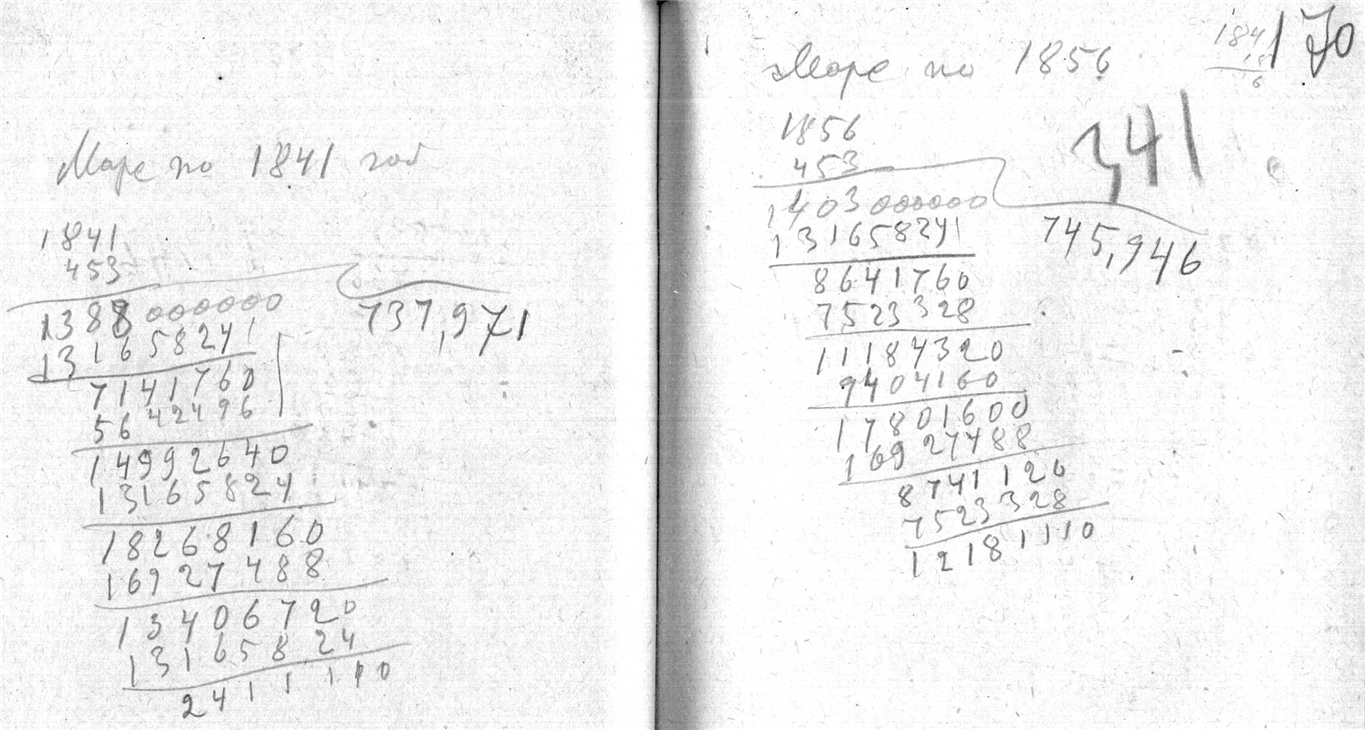 Море по 1841 год
1841
453
1388000000 737,971
131658241
7141760
5642496
14992640
13165824
18268160
16927488
13406720
13165824
2411110
170
Море по 1856
1856
453
341
1403000000 745,946
131658241
8641760
7523328
11184320
9404160
17801600
16927488
8741120
7523328
12181110